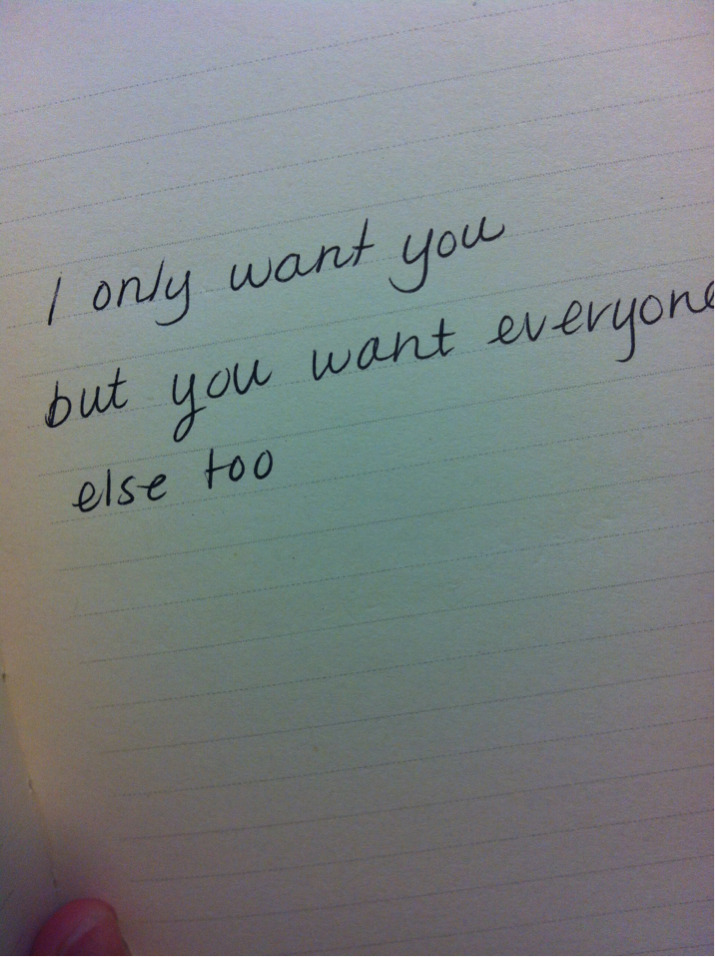 I only want you
but you want everyone
else too